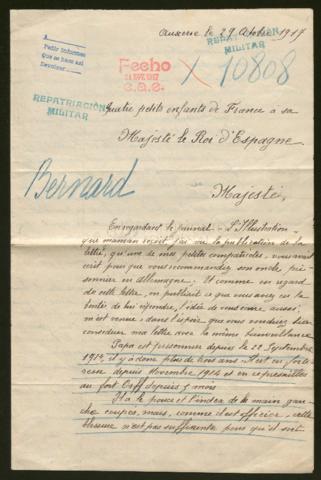 Auxerre le 29 Octobre 1917
Pedir informes
que se haga así
REPATRIACIÓN
MILITAR
Fecho
21 NOV. 1917
e.a.e.
X 10808
REPATRIACIÓN
MILITAR
Quatre petits enfants de France à sa
Majesté le Roi d'Espagne
Bernard
Majesté,
En regardant le journal "L'Illustration"
que maman reçoit, j'ai vu la publication de la
lettre, qu'une de mes petites compatriotes, vous avait
écrit pour que vous recommandiez son oncle, pri-
sonnier en Allemagne. Et comme en regard
de cette lettre, on publiait ce que vous avez eu la
bonté de lui répondre, l'idée de vous écrire, aussi,
m'est venue; dans l'espoir que vous voudrez bien
considérer ma lettre avec la même bienveillance.
Papa est prisonnier depuis le 22 Septembre
1914, il y a donc plus de trois ans. Il est en forte-
resse depuis Novembre 1914 et en représailles
au fort depuis 5 mois
Il a le pouce et l'index de la main gau-
che coupés, mais, comme il est officier, cette
blessure n'est pas suffisante pour qu'il soit